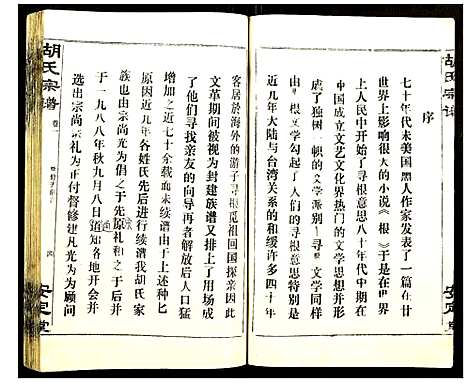 胡氏宗谱
安定堂
序
七十年代末美国黑人作家发表了一篇在廿
世界上影响很大的小说《根》于是在世界
上人民中开始了寻根意思八十年代中期在
中国成立文艺文化界热门的文学思想并形
成了独树一帜的文学派别—寻文学同样
由寻根文学勾起了人们的寻根意思特别是
近几年大陆与台湾关系的和缓许多四十年
客居于海外的游子寻根觅祖回国探亲因此
文革期间被视为封建族谱又排上了用场成
了他们寻找亲友的向导再者解放后人口猛
增加之近七十余载而未续谱由于上述种匕
原因近几年各姓氏先后进行续谱我胡氏家
族也由宗尚光为倡之于先原礼和之于后并
于一九八八年秋九月八日道知各地开会并
选出宗尚宗礼为正付督修建凡光为为顾问
胡氏宗谱
卷一
安定堂